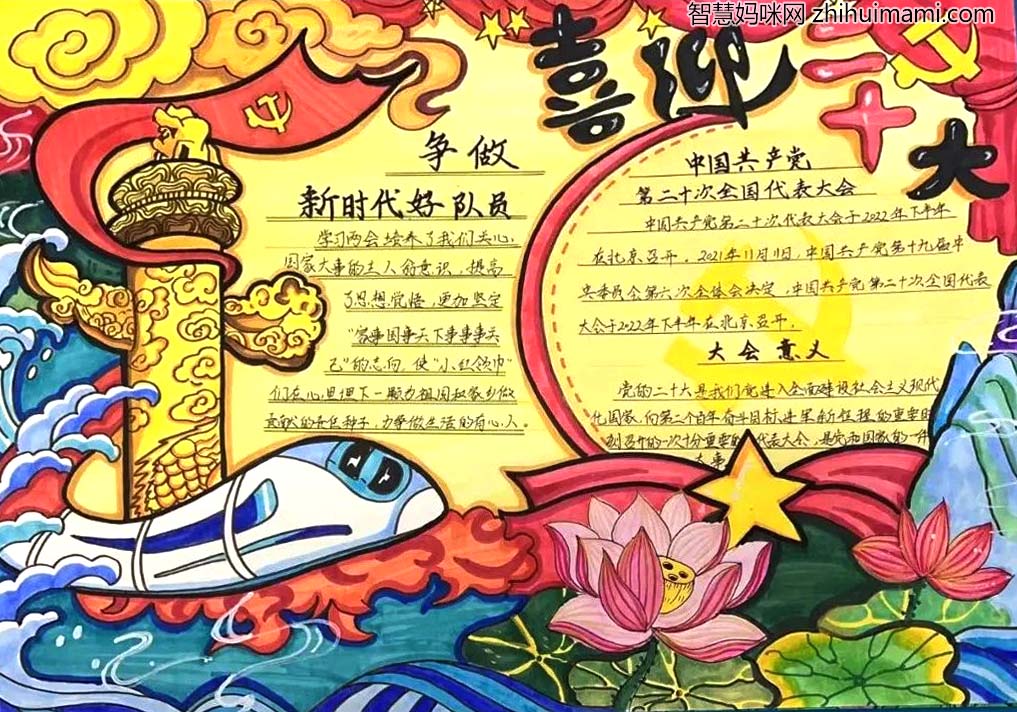 智慧妈咪网 zhihuimami.com
喜迎二十大
争做
新时代好队员
学习两会培养了我们关心
国家大事的主人翁意识，提高
了思想觉悟，更加坚定
“家事国事天下事事事关
己”的志向，使“小红领巾”
们在心里埋下一颗为祖国和家乡做
贡献的责任种子，力争做生活的有心人。
中国共产党
第二十次全国代表大会
中国共产党第二十次代表大会于2022年下半年
在北京召开，2021年11月11日，中国共产党第十九届中
央委员会第六次全体会决定，中国共产党第二十次全国代表
大会于2022年下半年在北京召开。
大会意义
党的二十大是我们党进入全面建设社会主义现代
化国家，向第二个百年奋斗目标进军新征程的重要时
刻召开的一次十分重要的代表大会，是党和国家的一件
大事